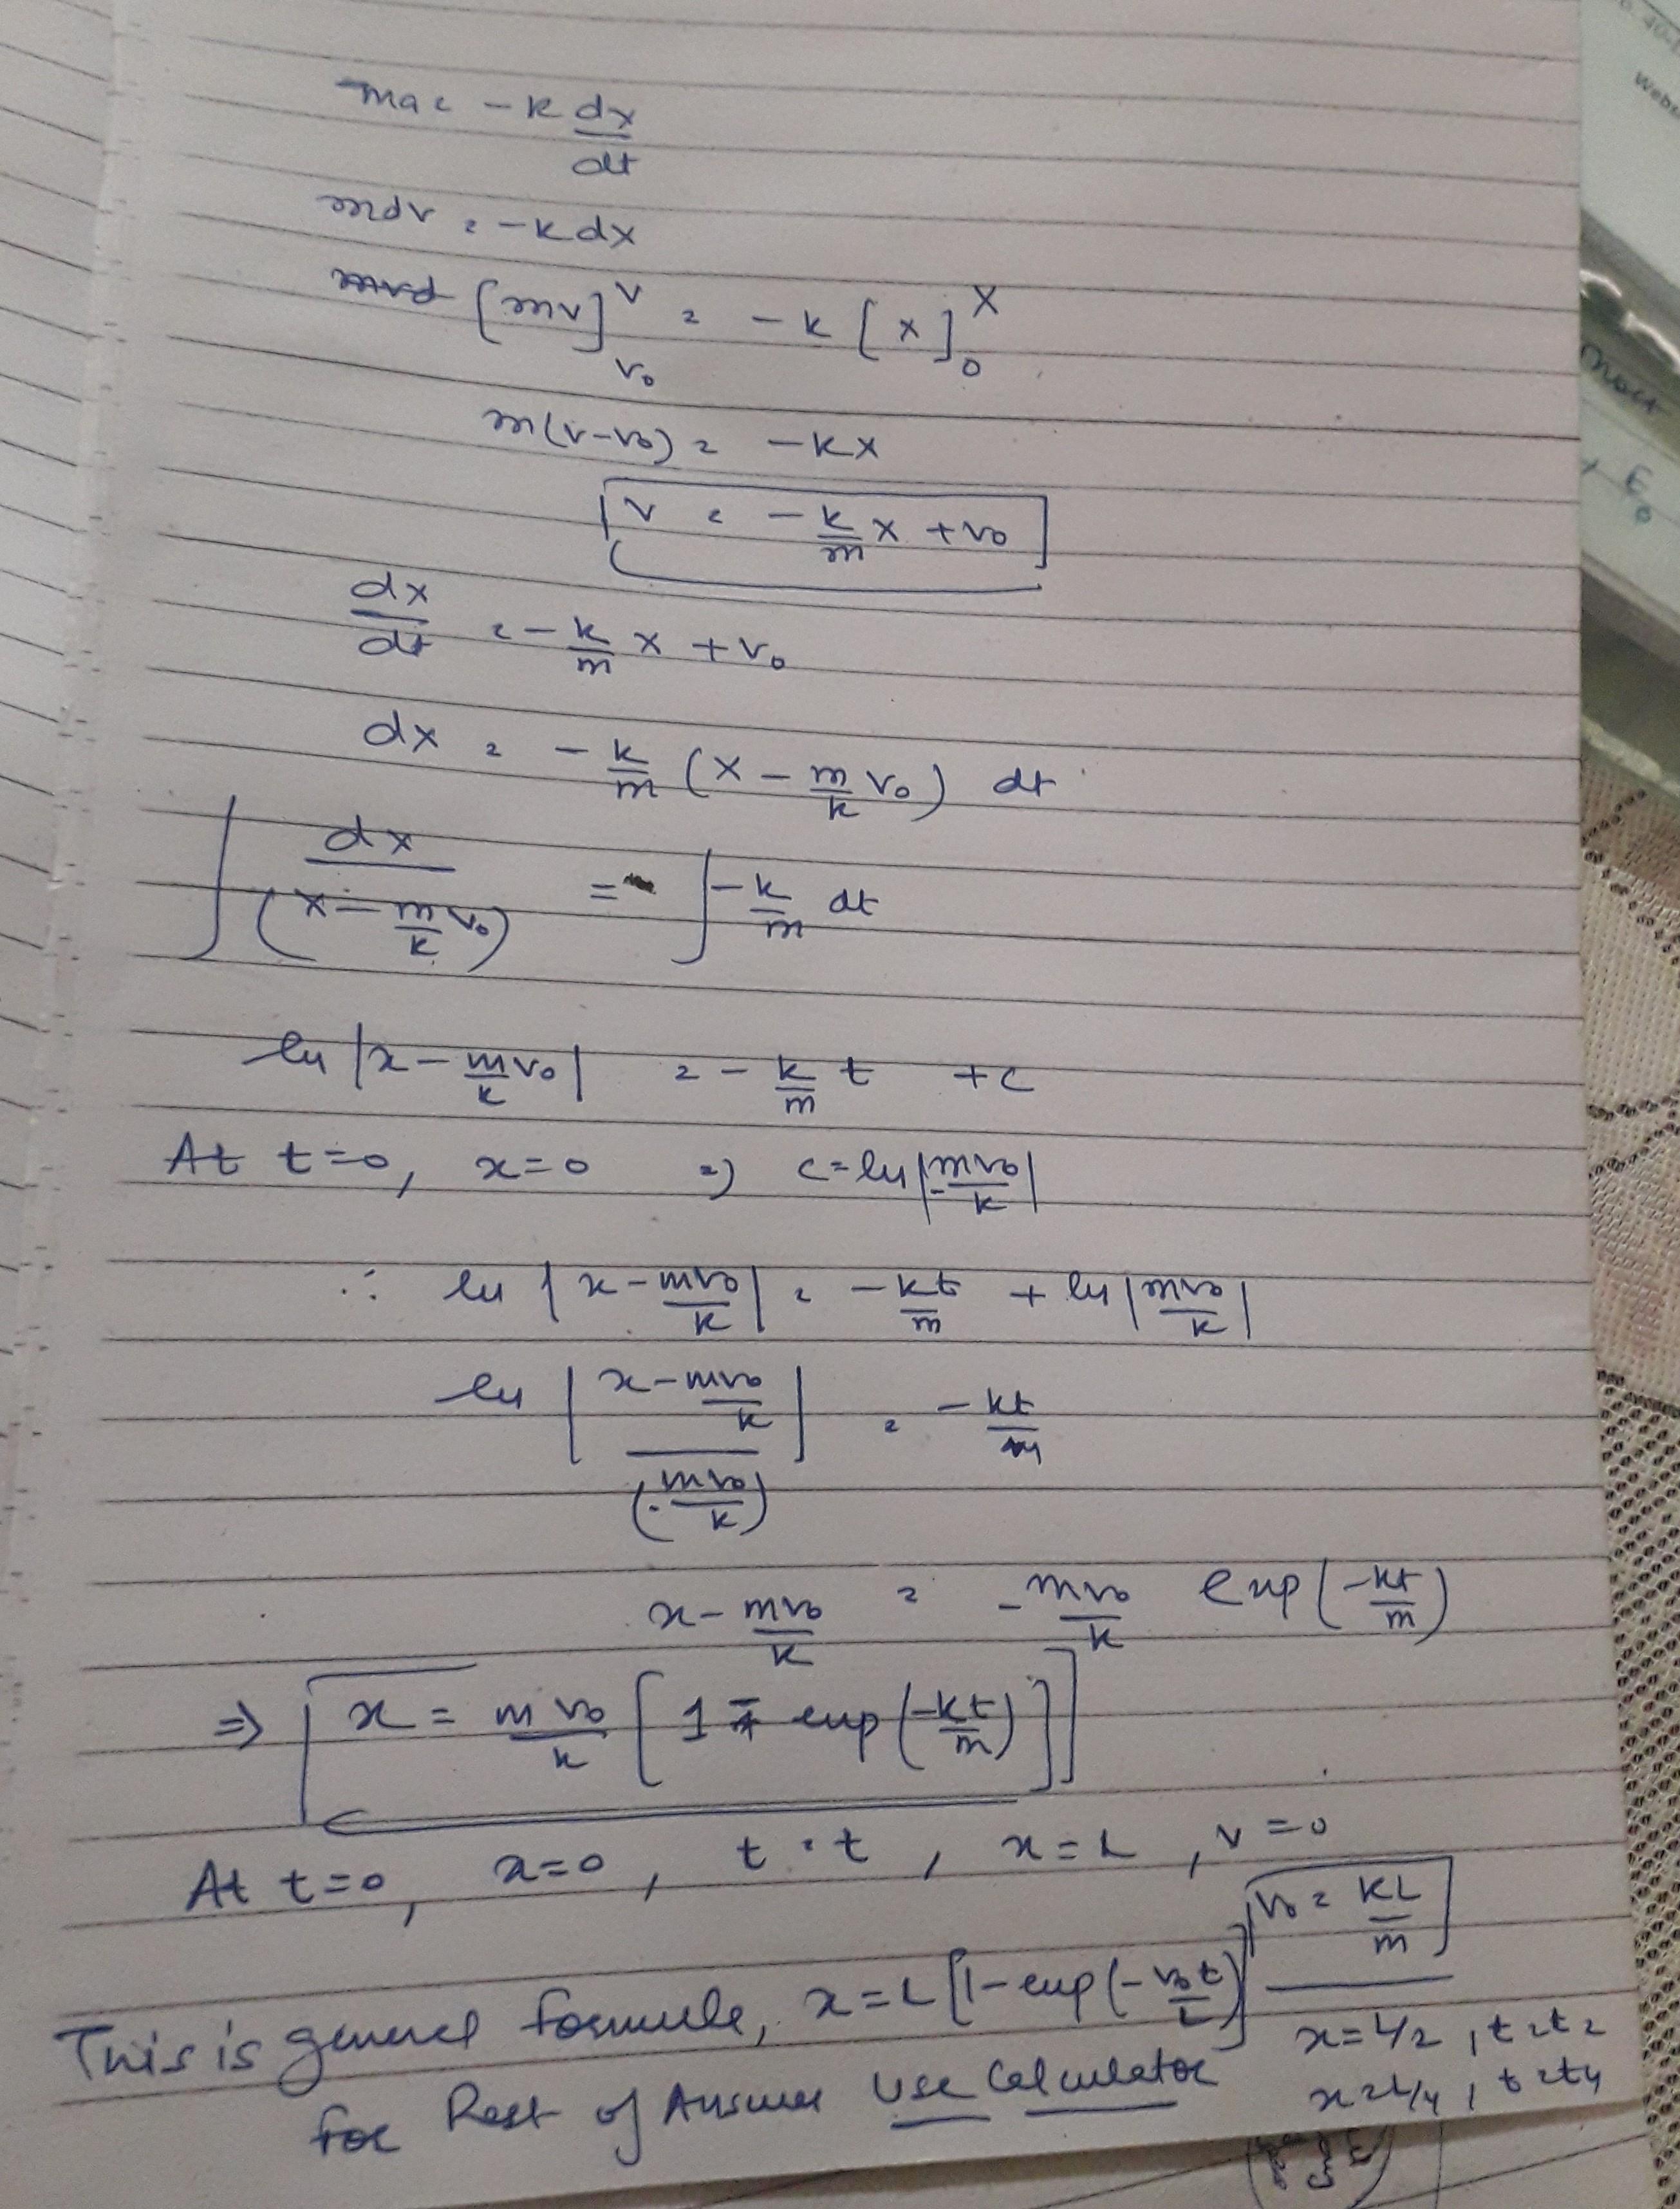 ma = -k dx/dt
mdv = -kdx
[mv]_{v0}^{v} = -k [x]_{0}^{x}
m(v-v0) = -kx
v = -k/m x + v0
dx/dt = -k/m x + v0
dx = -k/m (x - m/k v0) dt
∫ dx/(x - m/k v0) = ∫ -k/m dt
ln |x - mv0/k| = -k/m t + c
At t=0, x=0 ⇒ c = ln |-mv0/k|
∴ ln |x - mv0/k| = -kt/m + ln |mv0/k|
ln |(x - mv0/k)/(-mv0/k)| = -kt/m
x - mv0/k = -mv0/k exp(-kt/m)
⇒ x = mv0/k [1 - exp(-kt/m)]
At t=0, x=0, t=t, x=L, v=0
v0 = kL/m
This is general formula, x = L[1-exp(-v0t/L)]
x=L/2, t=t2
x=L/4, t=t4
For Rest of Answer Use Calculator
Webs
E0